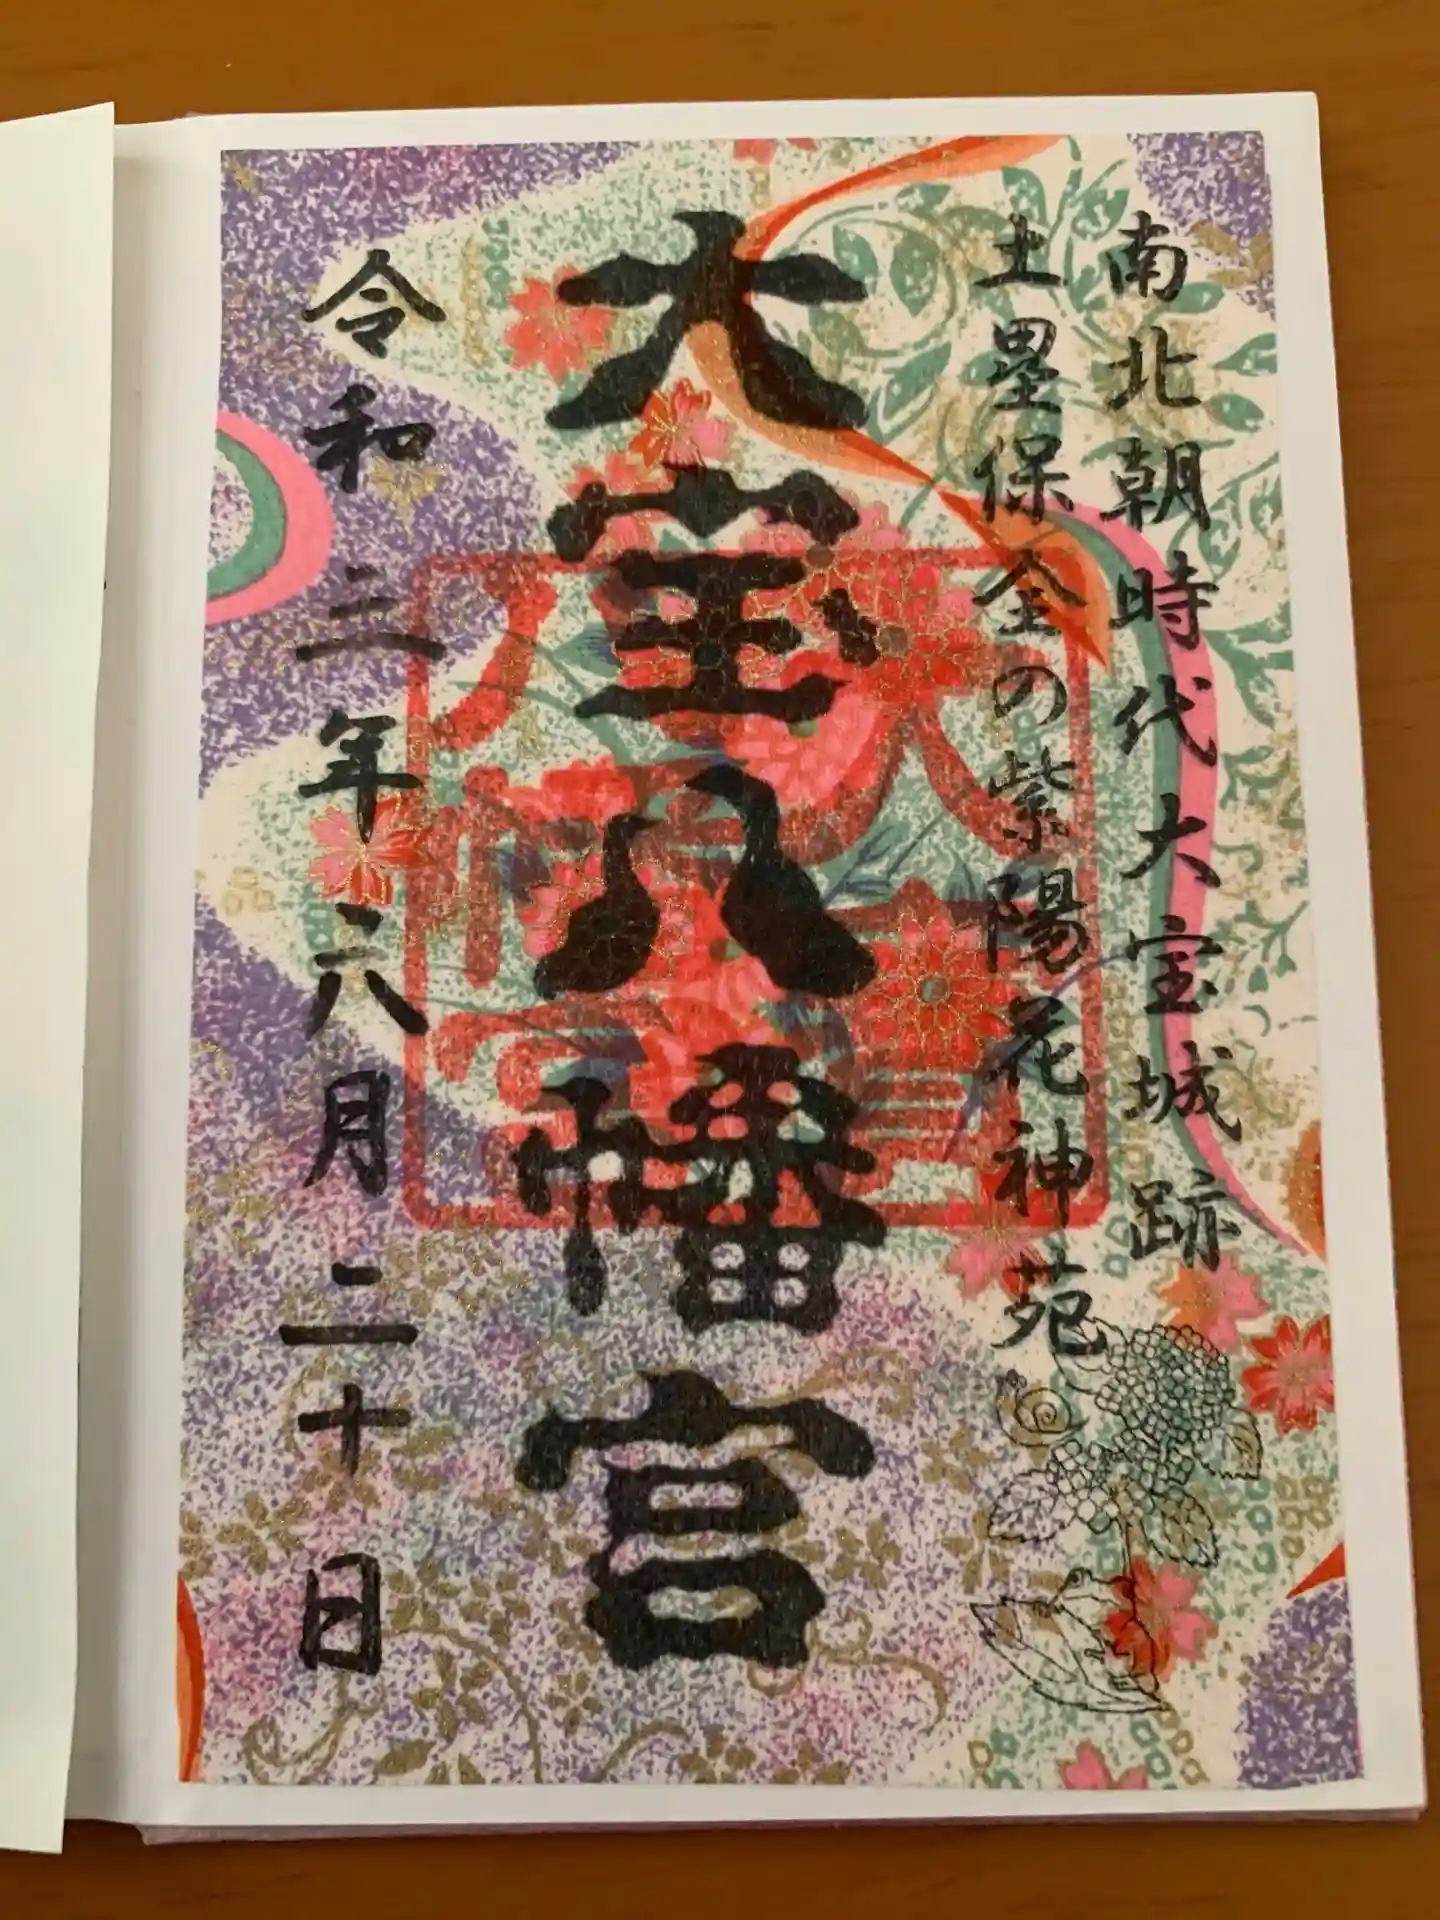 南北朝時代大宝城跡
土塁保全の紫陽花神苑
大宝八幡宮
令和三年六月二十日